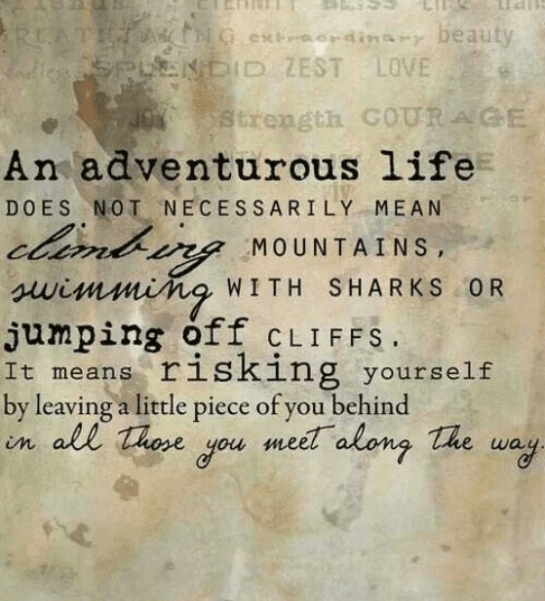 ETERNITY BLISS Life
BREATHTAKING extraordinary beauty
SPLENDID ZEST LOVE
JOY Strength COURAGE
An adventurous life
DOES NOT NECESSARILY MEAN
climbing MOUNTAINS,
swimming WITH SHARKS OR
jumping off CLIFFS.
It means risking yourself
by leaving a little piece of you behind
in all those you meet along the way.